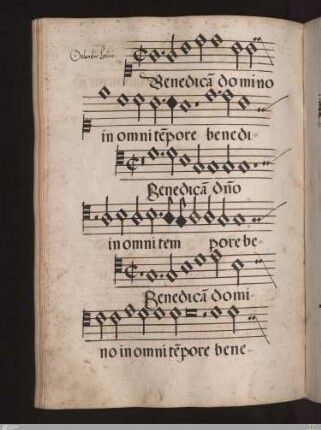 Orlandi Lassi
Benedicā domino
in omni tēpore benedi-
Benedicā dño
in omni tem pore be-
Benedicā domi-
no in omni tēpore bene-